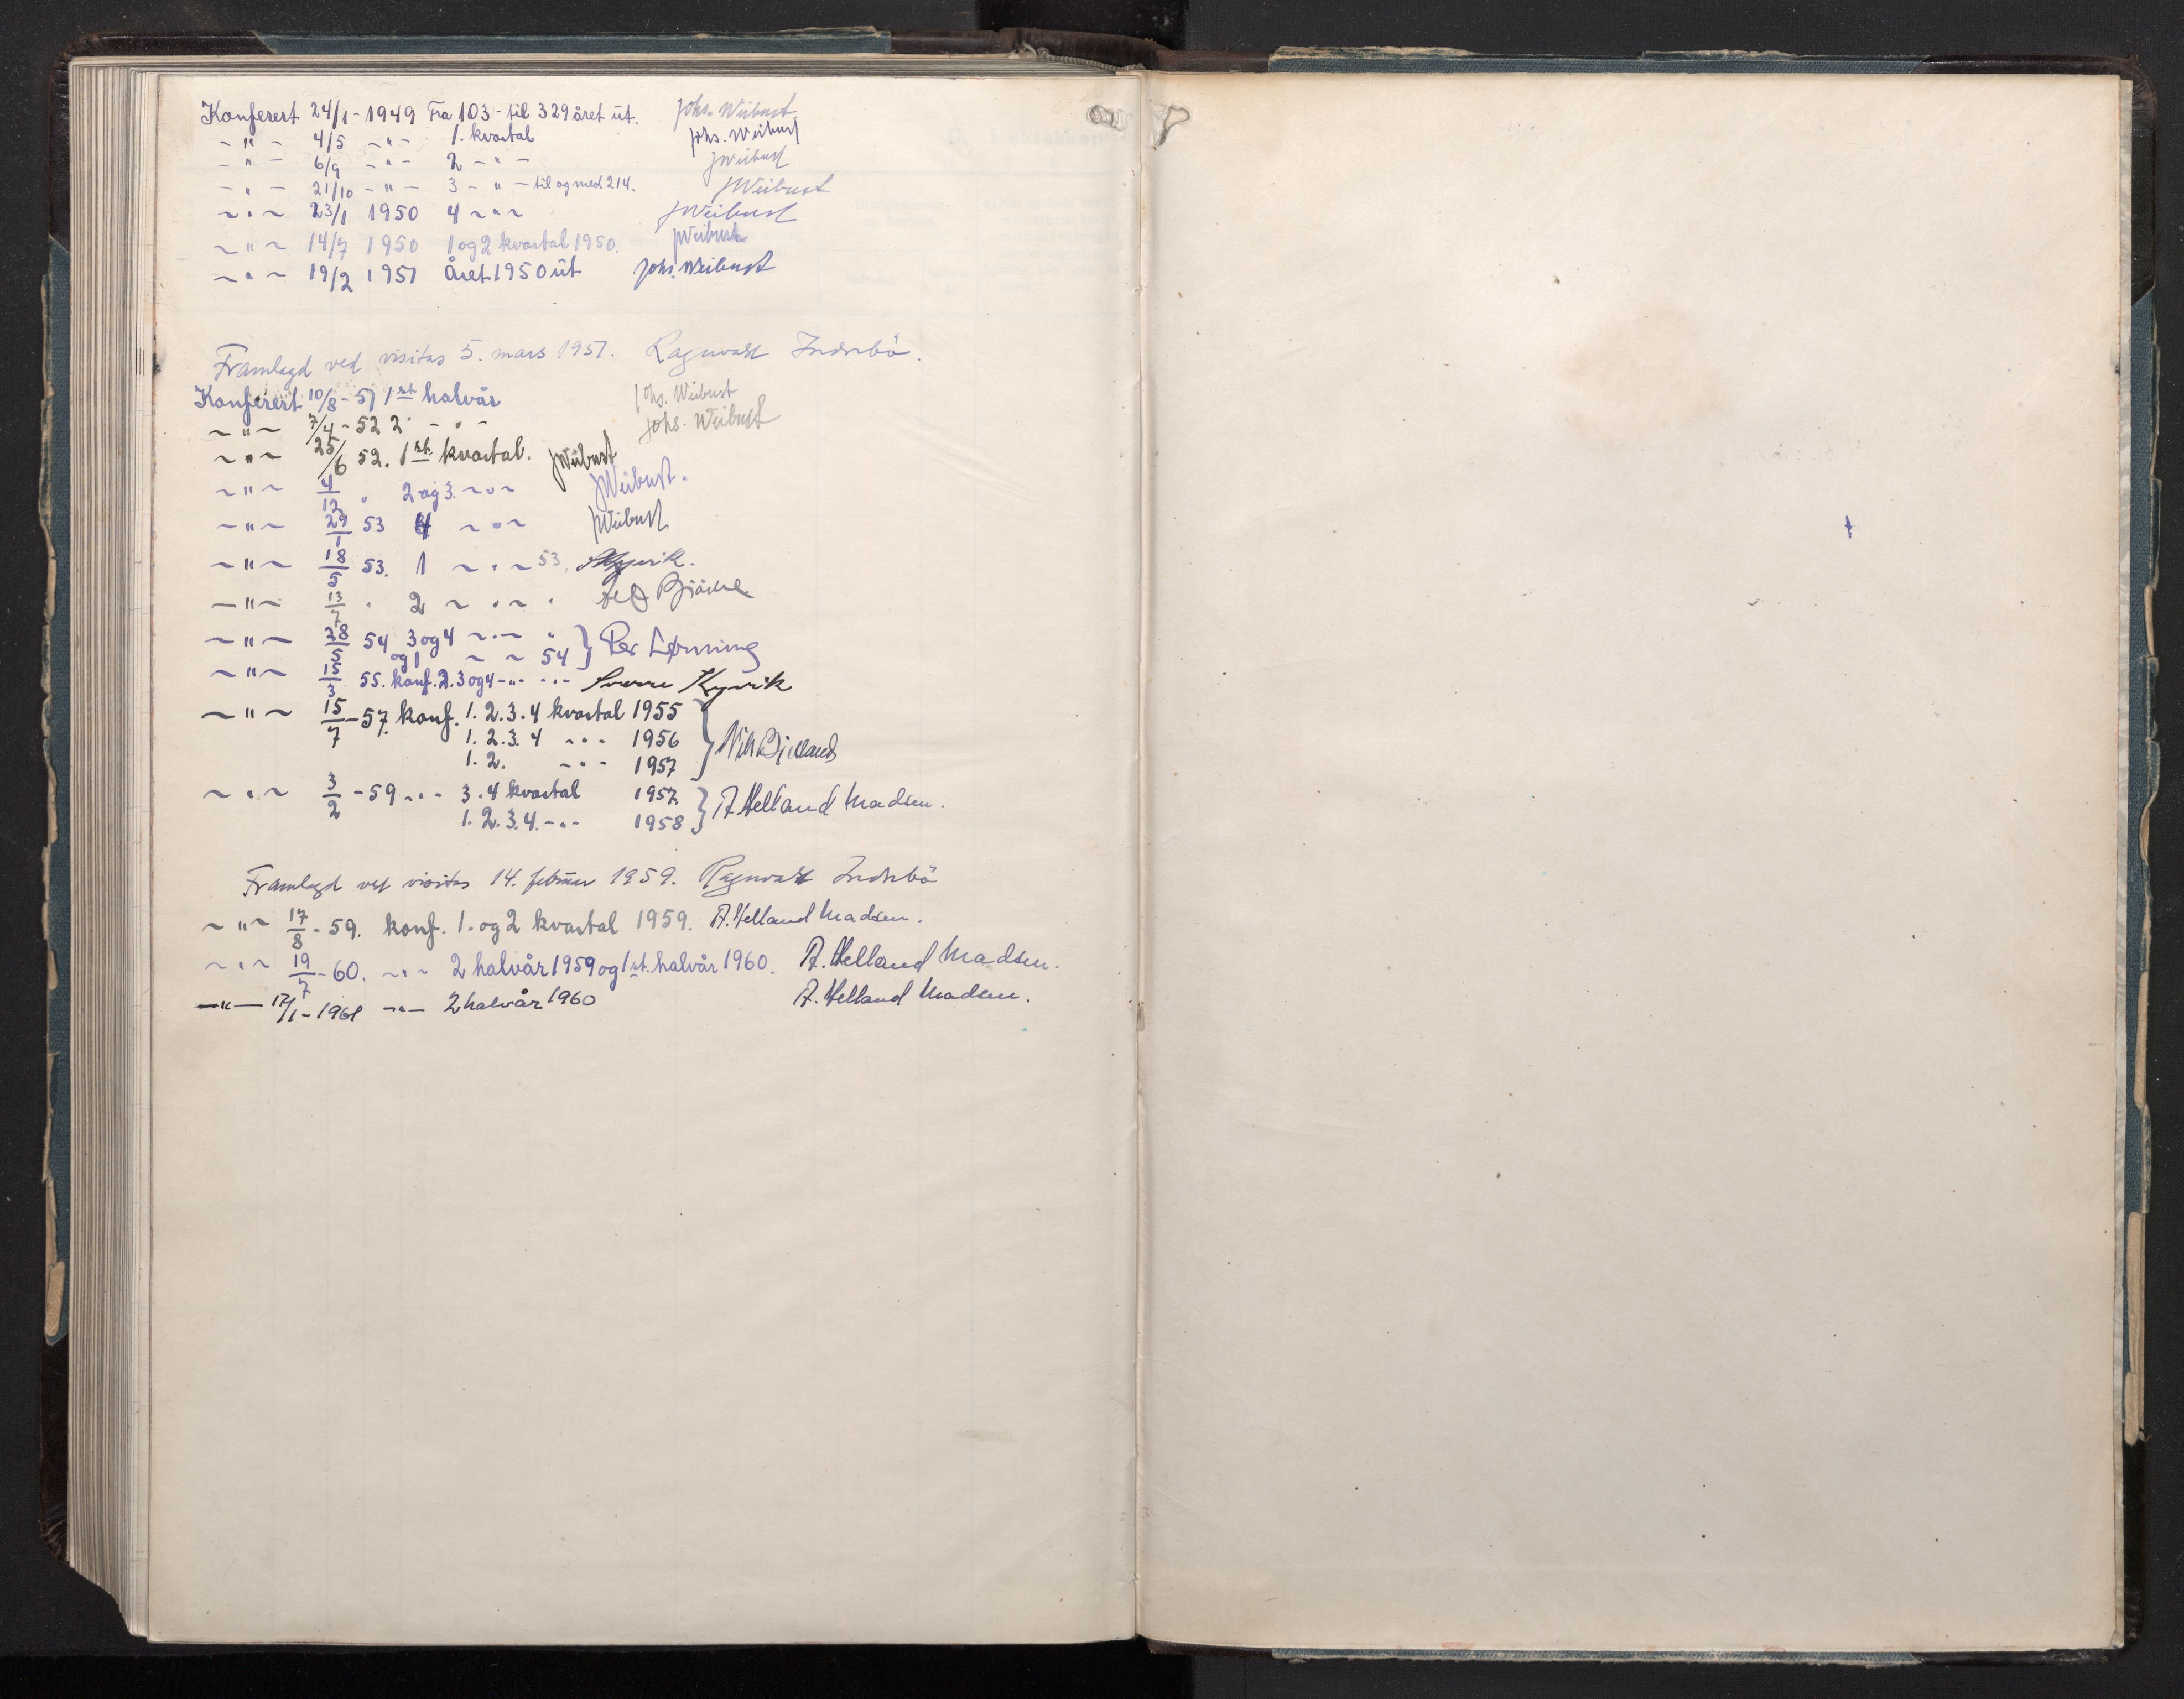 Konferert 24/1 - 1949 Fra 103 - til 329 året ut. Johs. Weibust
- " - 4/5 - " - 1. kvartal Johs. Weibust
- " - 6/9 - " - 2 - " - JWeibust
- " - 21/10 - " - 3 - " - til og med 214. JWeibust
~ " ~ 23/1 1950 4 ~ " ~ JWeibust
~ " ~ 14/7 1950 1 og 2 kvartal 1950. JWeibust
~ " ~ 19/2 1951 Året 1950 ut Johs. Weibust
Framlagd ved visitas 5. mars 1951. Ragnvald Indrebö.
Konferert 10/8 - 51 1st halvår Johs. Weibust
~ " ~ 7/4 - 52 2. - " - Johs. Weibust
~ " ~ 25/6 52. 1st. kvartal. JWeibust
~ " ~ 4/12 " 2 og 3. ~ " ~ JWeibust.
~ " ~ 29/1 53 4 ~ " ~ JWeibust
~ " ~ 18/5 53. 1 ~ " ~ 53. SKyvik.
~ " ~ 13/7 " 2 ~ " ~ "
~ " ~ 28/5 54 3 og 4 ~ " ~ " } Per Lønning
og 1 ~ ~ 54
~ " ~ 15/3 55. konf. 2. 3 og 4 - " - - " - Sverre Kyvik
~ " ~ 15/7 - 57. konf. 1. 2. 3. 4 kvartal 1955
1. 2. 3. 4 - " - 1956 } Nils Bjelland
1. 2. - " - 1957
~ " ~ 3/2 - 59 - " - 3. 4 kvartal 1957 } A. Helland Madsen.
1. 2. 3. 4. - " - 1958
Framlagd ved visitas 14. februar 1959. Ragnvald Indrebö
~ " ~ 17/8 - 59. konf. 1. og 2 kvartal 1959. A. Helland Madsen.
~ " ~ 19/7 - 60. ~ " ~ 2 halvår 1959 og 1st. halvår 1960. A. Helland Madsen.
- " - 17/1 - 1961 - " - 2 halvår 1960 A. Helland Madsen.